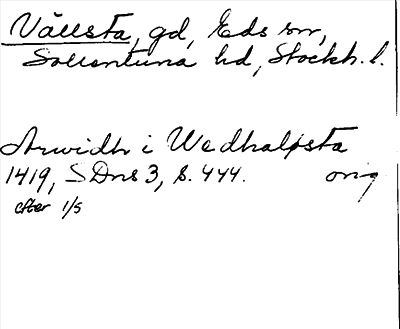 Vällsta, gd, Eds sn,
Sollentuna hd, Stockh. l.
Arwidh i Wedhalpsta
1419, SDns 3, s. 444. orig
efter 1/5